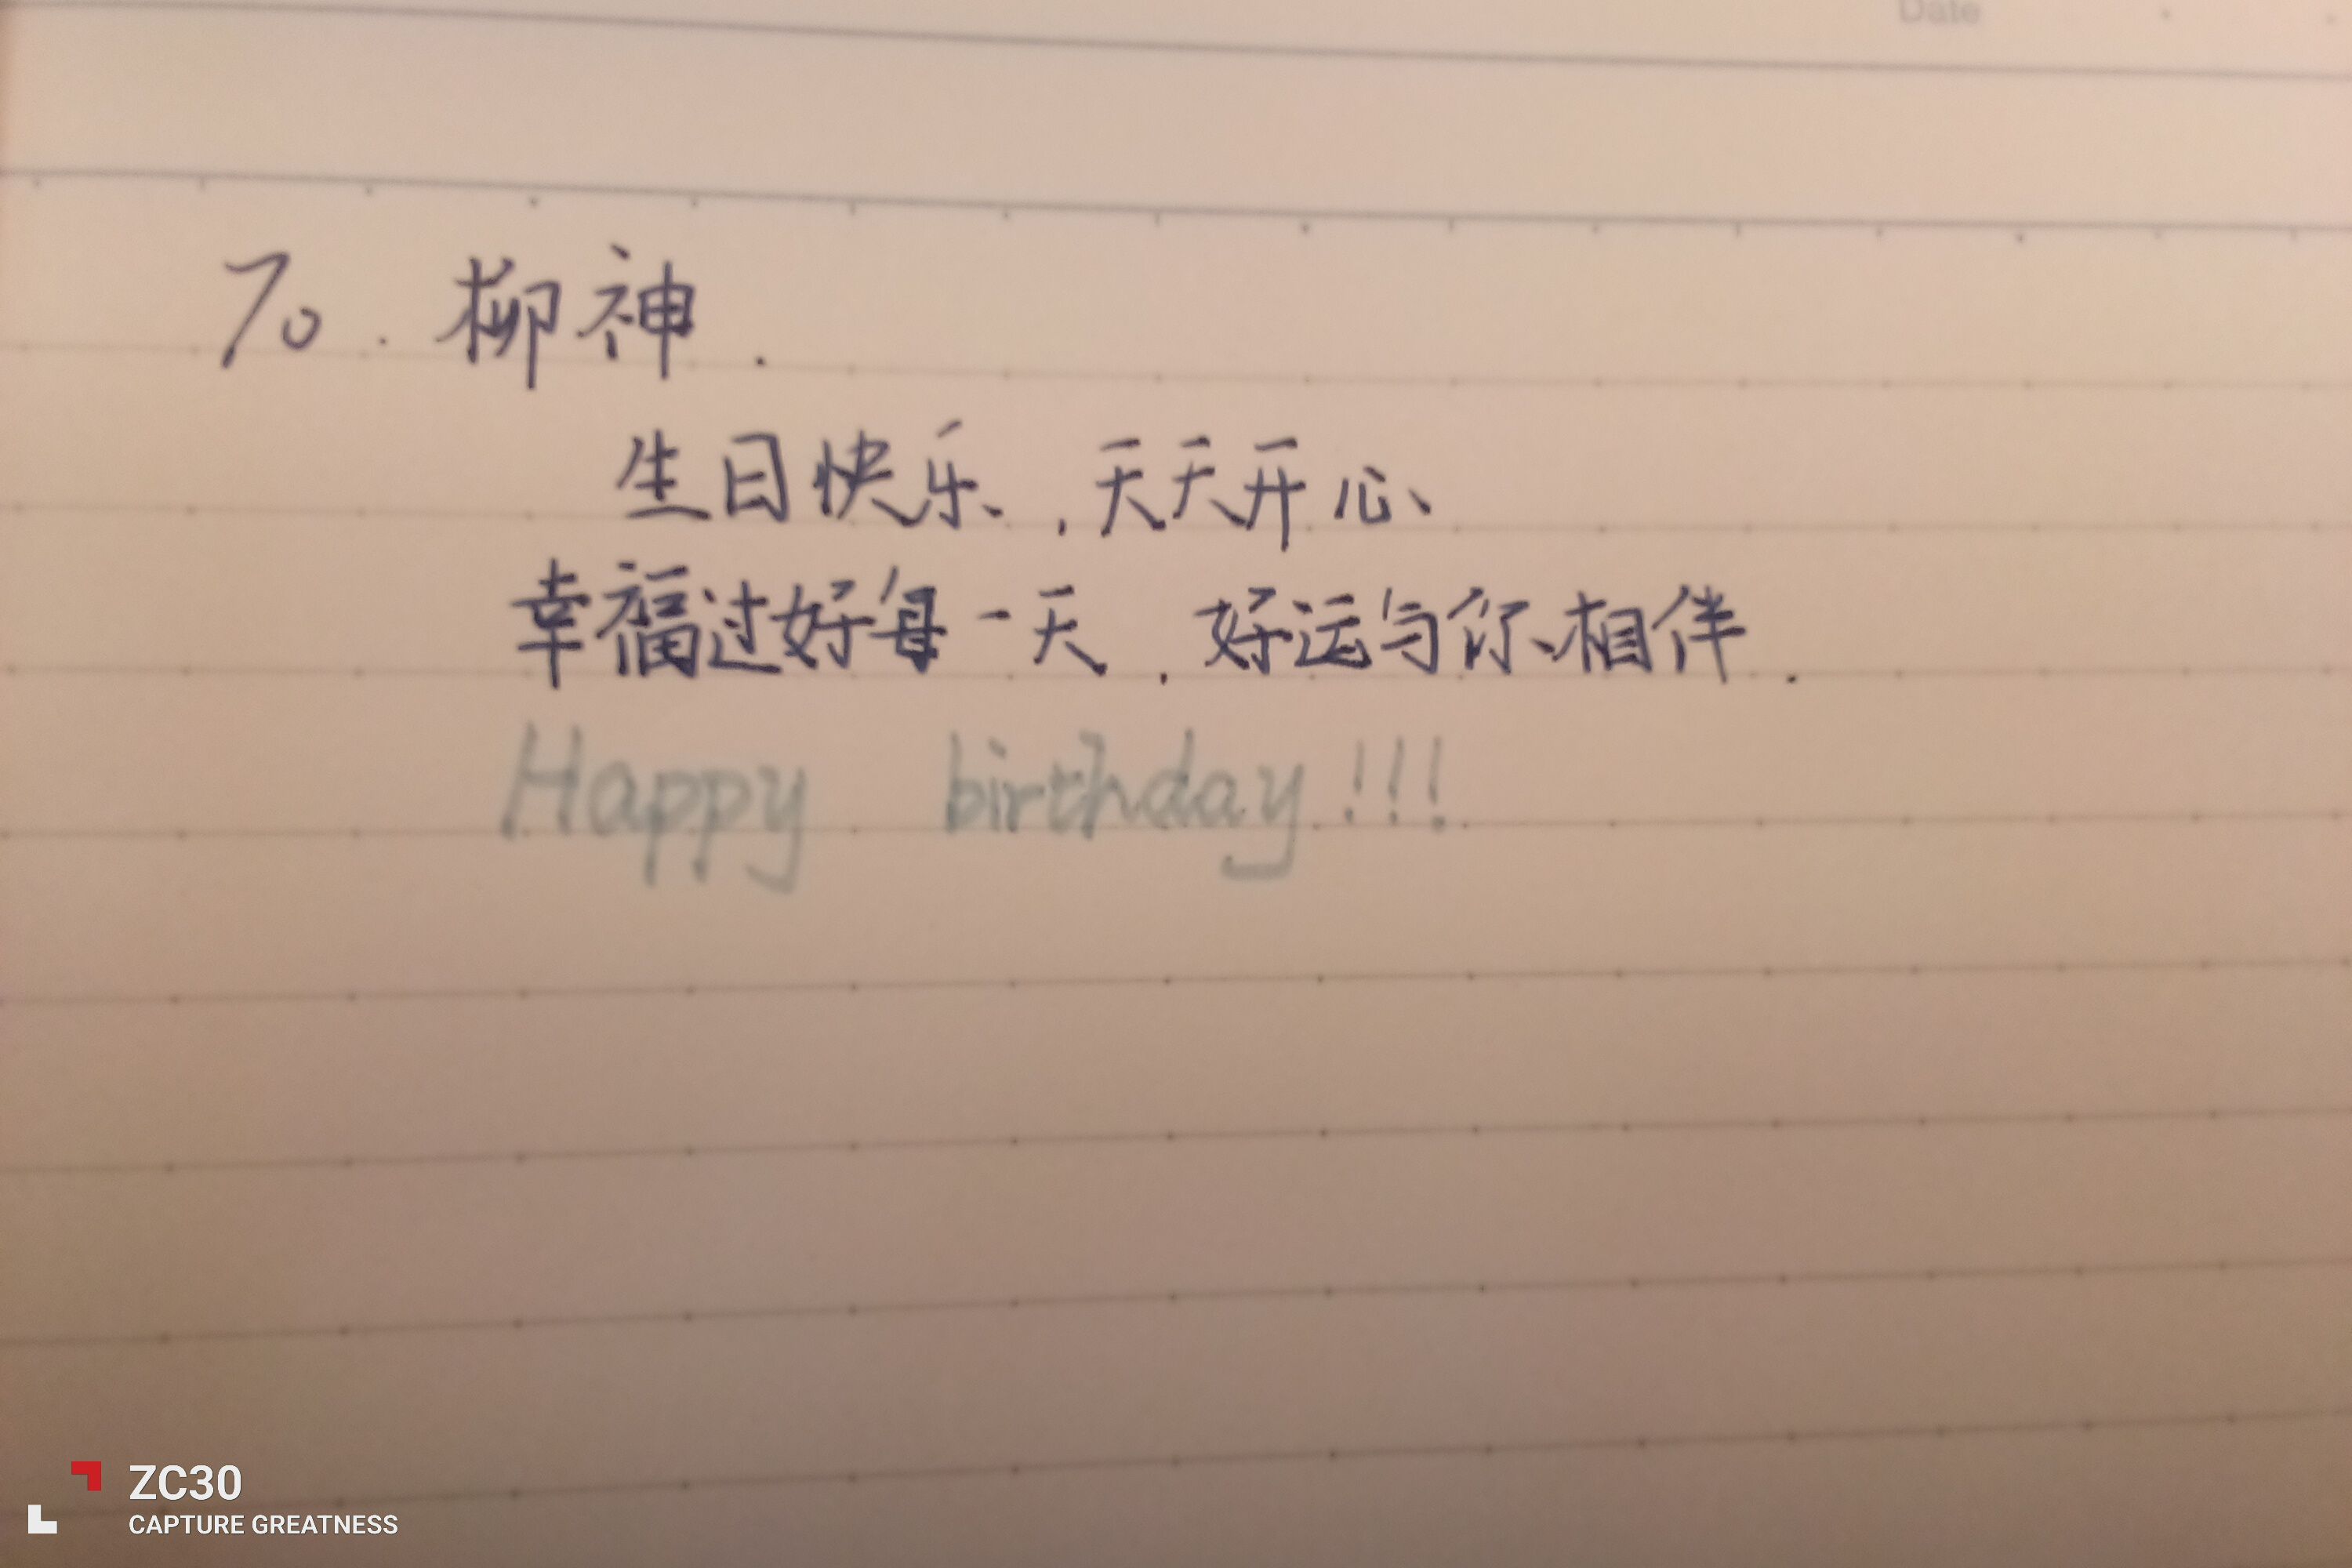 Date
To. 柳神.
生日快乐,天天开心、
幸福过好每一天,好运与你相伴.
Happy birthday!!!
ZC30
CAPTURE GREATNESS